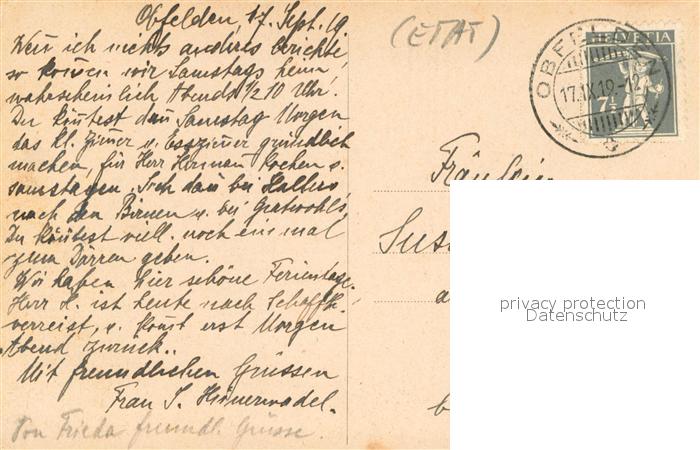 Obfelden, 17. Sept. 19
Wenn ich nichts anderes berichte,
so kommen wir Samstags heim,
wahrscheinlich Abends ½ 10 Uhr.
Du könntest dann Samstag Morgen
das kl. Zimmer u. Esszimmer gründlich
machen, für Herr Herman kochen u.
samstagen. Sieh dann bei Hallers
nach den Birnen u. bei Gratwohls,
Du könntest viell. noch ein mal
zum Dörren geben.
Wir haben hier schöne Ferientage.
Herr H. ist heute nach Schaffh.
verreist, u. komt erst Morgen
Abend zurück.
Mit freundlichen Grüssen
Frau S.
Von Frieda freundl. Grüsse.
(ETAT)
HELVETIA
7½
OBFELDEN
17.IX.19.-12
Fräulein
Sus
privacy protection
Datenschutz